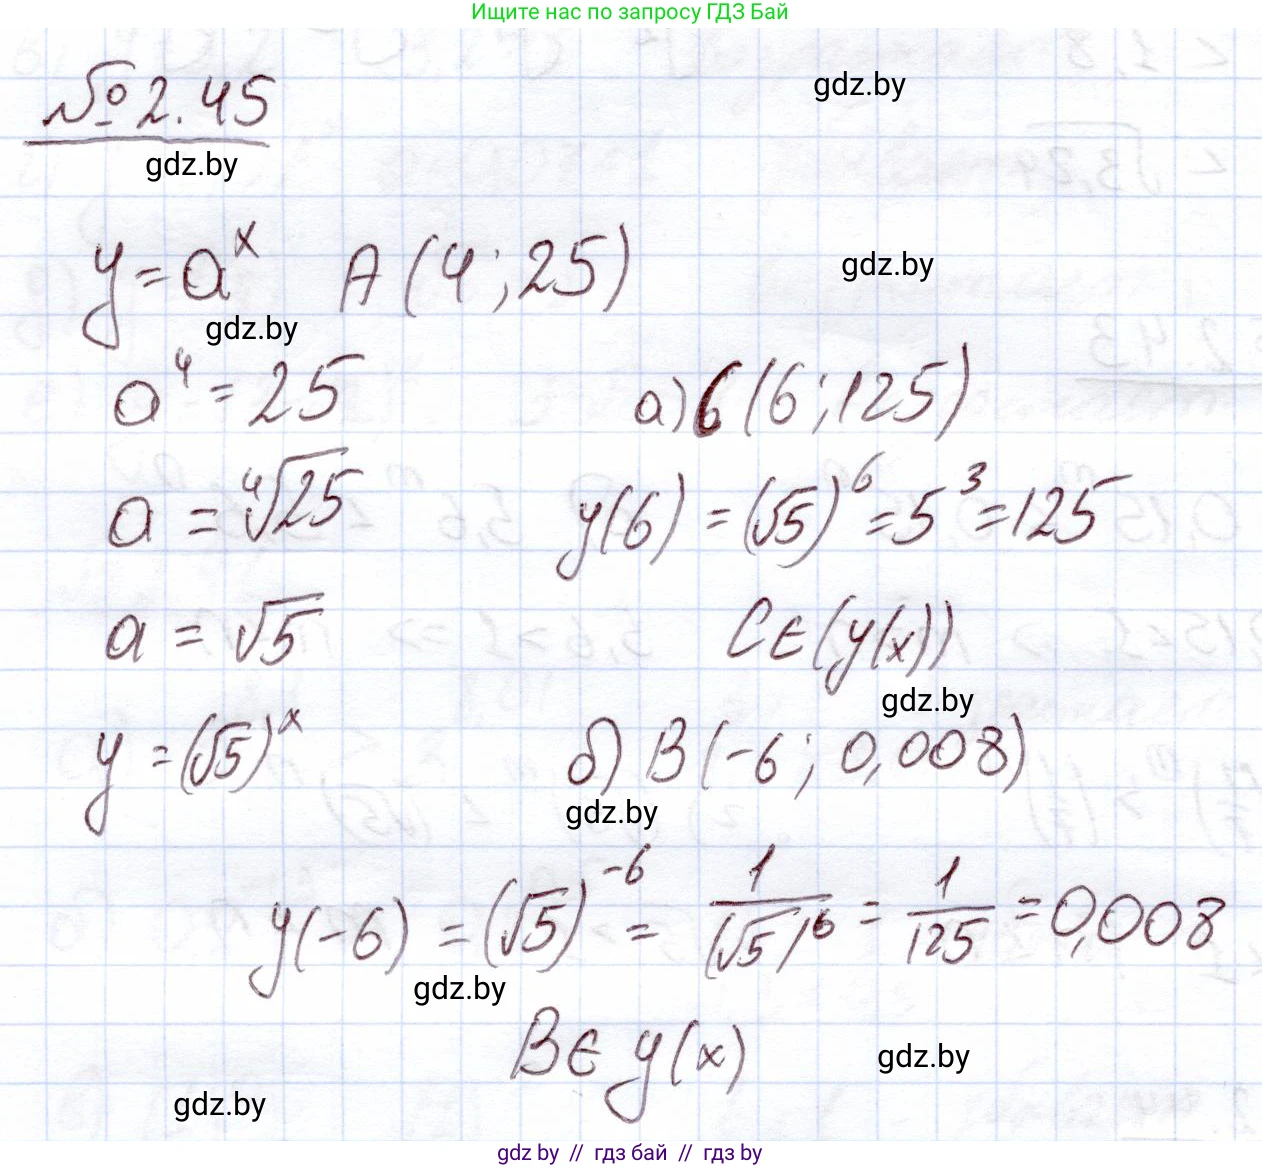 Ищите нас по запросу ГДЗ Бай
№ 2.45
gdz.by
gdz.by
y = a^x A (4 ; 25)
gdz.by
gdz.by
a^4 = 25
a = ⁴√25
a = √5
y = (√5)^x
а) C (6 ; 125)
y(6) = (√5)^6 = 5^3 = 125
C ∈ (y(x))
gdz.by
б) B (-6 ; 0,008)
gdz.by
y(-6) = (√5)^-6 = 1/(√5)^6 = 1/125 = 0,008
gdz.by
B ∈ y(x)
gdz.by
gdz.by
gdz by // гдз бай // гдз by